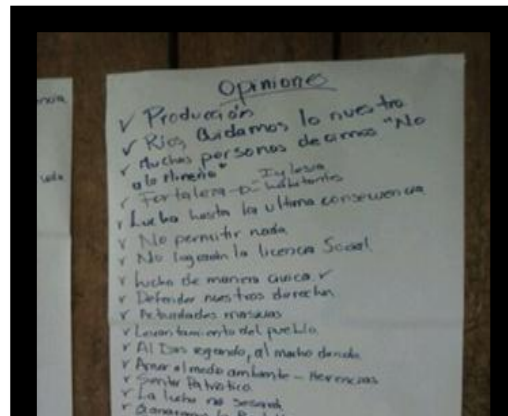 Opiniones
✓ Producción
✓ Ríos, Cuidamos lo nuestro
✓ Muchas personas decimos "No
a la Minería"
✓ Fortaleza - Iglesia
habitantes
✓ Lucha hasta la ultima consecuencia
✓ No permitir nada
✓ No lograrán la licencia Social
✓ Lucha de manera civica ✓
✓ Defender nuestros derechos
✓ Actividades masivas
✓ Levantamiento del pueblo
✓ Al Dios rogando, al macho dando
✓ Amor al medio ambiente - Herencias
✓ Sentir Patriótico
✓ La lucha no cesará